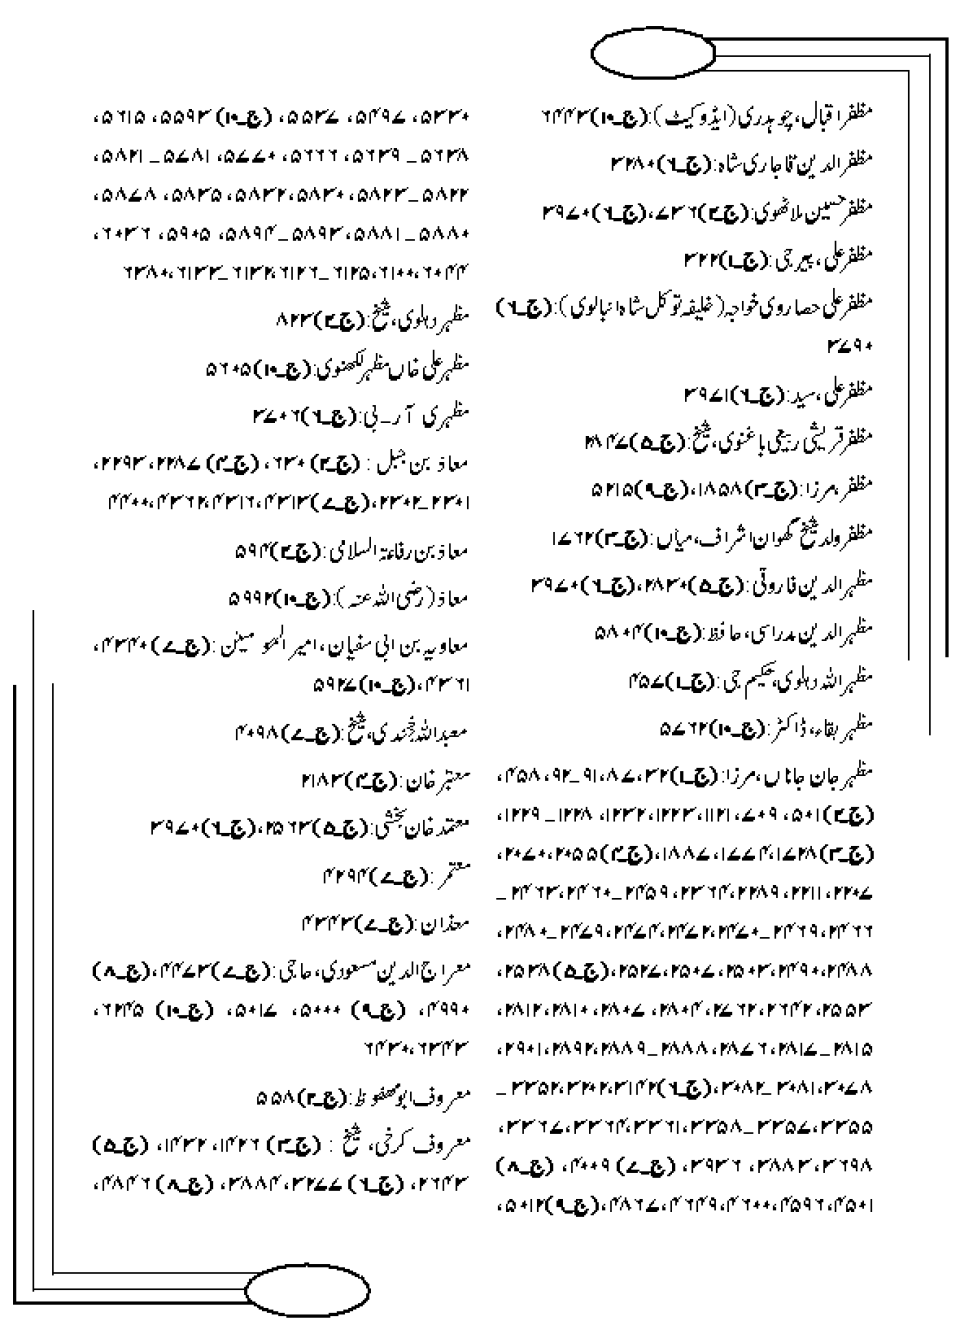 مظفر اقبال، چوہدری (ایڈوکیٹ): (ج۔۱۰) ۶۴۴۳
مظفر الدین قاجاری شاہ: (ج۔۶) ۳۲۸۰
مظفر حسین ملاٹھوی: (ج۔۲) ۷۳۶، (ج۔۶) ۳۹۷۰
مظفر علی، پیر جی: (ج۔۱) ۳۲۲
مظفر علی حصاروی خواجہ (خلیفہ توکل شاہ انبالوی): (ج۔۶)
۳۷۹۰
مظفر علی، سید: (ج۔۶) ۳۹۷۱
مظفر قریشی ربیعی باغنوی، شیخ: (ج۔۵) ۲۸۴۷
مظفر، مرزا: (ج۔۳) ۱۸۵۸، (ج۔۹) ۵۲۱۵
مظفر ولد شیخ گھوان اشراف، میاں: (ج۔۳) ۱۷۶۲
مظہر الدین فاروقی: (ج۔۵) ۲۸۳۰، (ج۔۶) ۳۹۷۰
مظہر الدین مدراسی، حافظ: (ج۔۱۰) ۵۸۰۴
مظہر اللہ دہلوی، حکیم جی: (ج۔۱) ۴۵۷
مظہر بقاء، ڈاکٹر: (ج۔۱۰) ۵۷۶۲
مظہر جان جاناں، مرزا: (ج۔۱) ۳۲، ۸۷، ۹۱۔۹۲، ۴۵۸،
(ج۔۲) ۵۰۱، ۷۰۹، ۱۱۲۱، ۱۲۲۳، ۱۲۳۲، ۱۲۲۸۔۱۲۲۹،
(ج۔۳) ۱۷۲۸، ۱۷۷۴، ۱۸۸۷، (ج۔۴) ۲۰۵۵، ۲۰۷۰،
۲۲۰۷، ۲۲۱۱، ۲۲۸۹، ۲۳۶۴، ۲۴۵۹۔۲۴۶۰، ۲۴۶۳۔
۲۴۶۶، ۲۴۶۹۔۲۴۷۰، ۲۴۷۲، ۲۴۷۴، ۲۴۷۹۔۲۴۸۰،
۲۴۸۸، ۲۴۹۰، ۲۵۰۳، ۲۵۰۷، ۲۵۲۷، (ج۔۵) ۲۵۳۸،
۲۵۵۳، ۲۶۴۲، ۲۷۶۲، ۲۸۰۴، ۲۸۰۷، ۲۸۱۰، ۲۸۱۲،
۲۸۱۵۔۲۸۱۷، ۲۸۷۶، ۲۸۸۸۔۲۸۸۹، ۲۸۹۲، ۲۹۰۱،
۳۰۷۸، ۳۰۸۱۔۳۰۸۲، (ج۔۶) ۳۱۴۲، ۳۲۰۲، ۳۳۵۲۔
۳۳۵۵، ۳۳۵۷۔۳۳۵۸، ۳۳۶۱، ۳۳۶۴، ۳۳۶۷،
۳۶۹۸، ۳۸۸۳، ۳۹۳۶، (ج۔۷) ۴۰۰۹، (ج۔۸)
۴۵۰۱، ۴۵۹۶، ۴۶۰۰، ۴۶۴۹، ۴۸۶۷، (ج۔۹) ۵۰۱۲،
۵۳۳۰، ۵۴۹۷، ۵۵۳۷، (ج۔۱۰) ۵۵۹۳، ۵۶۱۵،
۵۶۳۸۔۵۶۳۹، ۵۶۶۶، ۵۷۷۰، ۵۷۸۱۔۵۸۲۱،
۵۸۲۲۔۵۸۲۳، ۵۸۳۰، ۵۸۳۲، ۵۸۳۵، ۵۸۷۸،
۵۸۸۰۔۵۸۸۱، ۵۸۹۳۔۵۸۹۴، ۵۹۰۵، ۶۰۳۶،
۶۰۴۴، ۶۱۰۰، ۶۱۲۵۔۶۱۲۶، ۶۱۳۲۔۶۱۳۳، ۶۳۸۰
مظہر دہلوی، شیخ: (ج۔۲) ۸۲۳
مظہر علی خاں مظہر لکھنوی: (ج۔۱۰) ۵۶۰۵
مظہری آر۔بی: (ج۔۶) ۳۷۰۶
معاذ بن جبل: (ج۔۲) ۶۳۰، (ج۔۴) ۲۲۸۷، ۲۲۹۳،
۲۳۰۱۔۲۳۰۲، (ج۔۷) ۴۳۱۳، ۴۳۱۶، ۴۳۶۲، ۴۴۰۰
معاذ بن رفاعۃ السلامی: (ج۔۲) ۵۹۴
معاذ (رضی اللہ عنہ): (ج۔۱۰) ۵۹۹۲
معاویہ بن ابی سفیان، امیر المومنین: (ج۔۷) ۴۳۴۰،
۴۳۶۱، (ج۔۱۰) ۵۹۲۷
معبد اللہ خجندی، شیخ: (ج۔۷) ۴۰۹۸
معتبر خان: (ج۔۴) ۲۱۸۳
معتمد خان بخشی: (ج۔۵) ۲۵۶۳، (ج۔۶) ۳۹۷۰
معتمر: (ج۔۷) ۴۲۹۴
معذان: (ج۔۷) ۴۳۴۳
معراج الدین مسعودی، حاجی: (ج۔۷) ۴۴۷۳، (ج۔۸)
۴۹۹۰، (ج۔۹) ۵۰۰۰، ۵۰۱۷، (ج۔۱۰) ۶۲۴۵،
۶۳۴۳، ۶۴۳۰
معروف ابو محفوظ: (ج۔۲) ۵۵۸
معروف کرخی، شیخ: (ج۔۳) ۱۴۲۶، ۱۴۳۲، (ج۔۵)
۲۶۴۳، (ج۔۶) ۳۲۷۷، ۳۸۸۴، (ج۔۸) ۴۸۴۶،